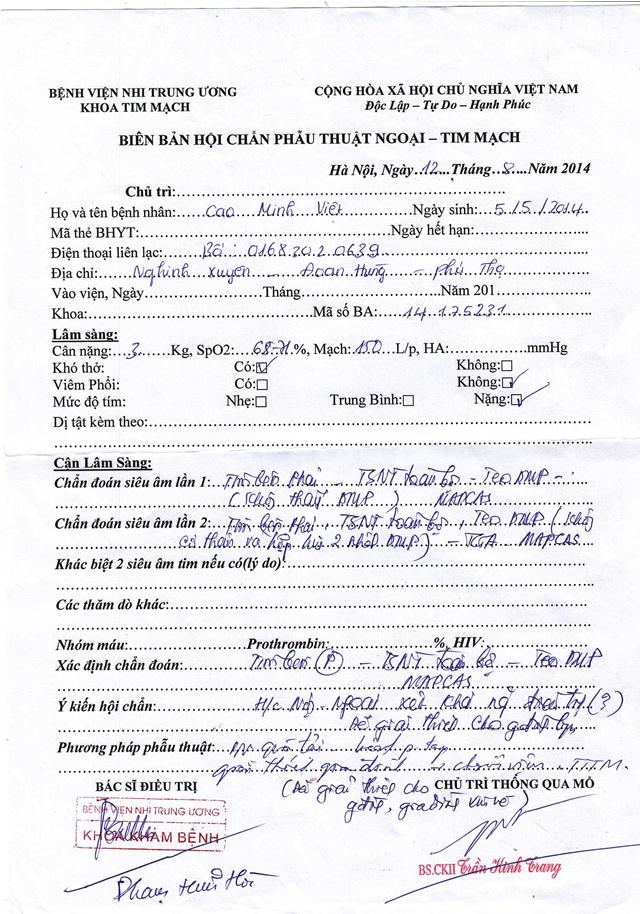 BỆNH VIỆN NHI TRUNG ƯƠNG
KHOA TIM MẠCH
CỘNG HÒA XÃ HỘI CHỦ NGHĨA VIỆT NAM
Độc Lập – Tự Do – Hạnh Phúc
BIÊN BẢN HỘI CHẨN PHẪU THUẬT NGOẠI – TIM MẠCH
Hà Nội, Ngày 12 Tháng 8 Năm 2014
Chủ trì:
Họ và tên bệnh nhân: Cao Minh Việt Ngày sinh: 5/5/2014
Mã thẻ BHYT: Ngày hết hạn:
Điện thoại liên lạc: Bố: 0168.202.0639
Địa chỉ: Nghinh Xuyên – Đoan Hùng – Phú Thọ
Vào viện, Ngày Tháng Năm 201
Khoa: Mã số BA: 14.175231
Lâm sàng:
Cân nặng: 3 Kg, SpO2: 68-71 %, Mạch: 150 L/p, HA: mmHg
Khó thở: Có: Không:
Viêm Phổi: Có: Không:
Mức độ tím: Nhẹ: Trung Bình: Nặng:
Dị tật kèm theo:
Cận Lâm Sàng:
Chẩn đoán siêu âm lần 1: Tim bên phải – TSNT toàn bộ – Teo ĐMP –
(không thấy ĐMP) MAPCAS
Chẩn đoán siêu âm lần 2: Tim bên phải, TSNT toàn bộ, Teo ĐMP (không
có thân và hợp lưu 2 nhánh ĐMP) – TGA MAPCAS
Khác biệt 2 siêu âm tim nếu có(lý do):
Các thăm dò khác:
Nhóm máu: Prothrombin: %, HIV:
Xác định chẩn đoán: Tim bên (P) – TSNT toàn bộ – Teo ĐMP
MAPCAS
Ý kiến hội chẩn: H/c Nội – Ngoại xét khả năng điều trị (?)
Đã giải thích cho gia đình
Phương pháp phẫu thuật: quá tải
giải thích gia đình
(Đã giải thích cho
gđ
BÁC SĨ ĐIỀU TRỊ
CHỦ TRÌ THÔNG QUA MỔ
BỆNH VIỆN NHI TRUNG ƯƠNG
KHOA KHÁM BỆNH
BS.CKII Trần Kinh Trang